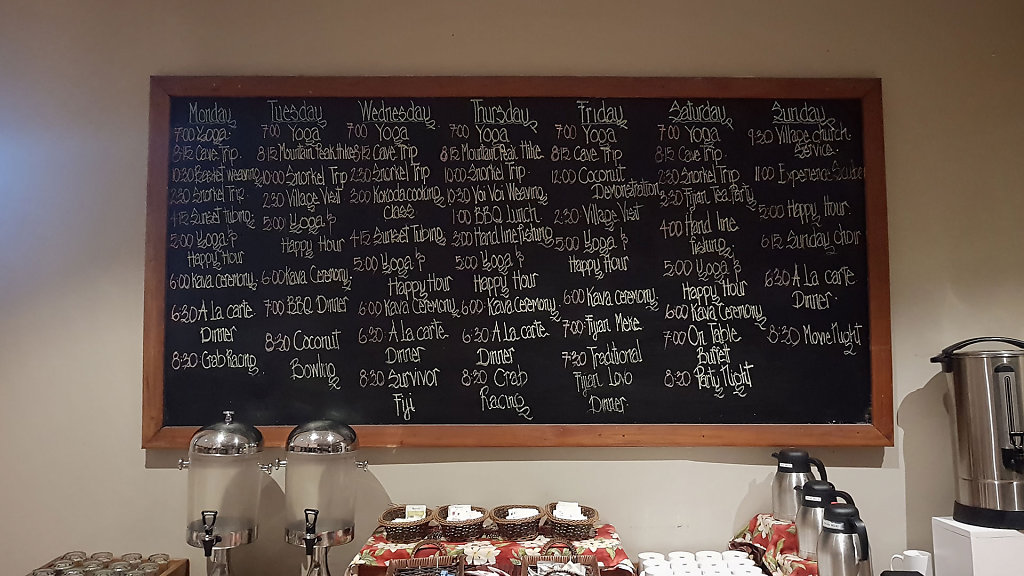 Monday
7:00 Yoga
8:15 Cave Trip
10:30 Basket Weaving
2:30 Snorkel Trip
4:15 Sunset Tubing
5:00 Yoga &
Happy Hour
6:00 Kava Ceremony
6:30 A La Carte
Dinner
8:30 Crab Racing
Tuesday
7:00 Yoga
8:15 Mountain Peak Hike
10:00 Snorkel Trip
2:30 Village Visit
5:00 Yoga &
Happy Hour
6:00 Kava Ceremony
7:00 BBQ Dinner
8:30 Coconut
Bowling
Wednesday
7:00 Yoga
8:15 Cave Trip
2:30 Snorkel Trip
3:00 Kokoda cooking
Class
4:15 Sunset Tubing
5:00 Yoga &
Happy Hour
6:00 Kava Ceremony
6:30 A La Carte
Dinner
8:30 Survivor
Fiji
Thursday
7:00 Yoga
8:15 Mountain Peak Hike
10:00 Snorkel Trip
10:30 Voi Voi Weaving
1:00 BBQ Lunch
3:00 Hand line fishing
5:00 Yoga &
Happy Hour
6:00 Kava Ceremony
6:30 A La Carte
Dinner
8:30 Crab
Racing
Friday
7:00 Yoga
8:15 Cave Trip
12:00 Coconut
Demonstration
2:30 Village Visit
5:00 Yoga &
Happy Hour
6:00 Kava Ceremony
7:00 Fijian Meke
7:30 Traditional
Fijian Lovo
Dinner
Saturday
7:00 Yoga
8:15 Cave Trip
2:30 Snorkel Trip
3:30 Fijian Tea Party
4:00 Hand line
fishing
5:00 Yoga &
Happy Hour
6:00 Kava Ceremony
7:00 On Table
Buffet
8:30 Party Night
Sunday
9:30 Village church
Service
11:00 Experience Scuba
5:00 Happy Hour
6:15 Sunday choir
6:30 A La Carte
Dinner
8:30 Movie Night